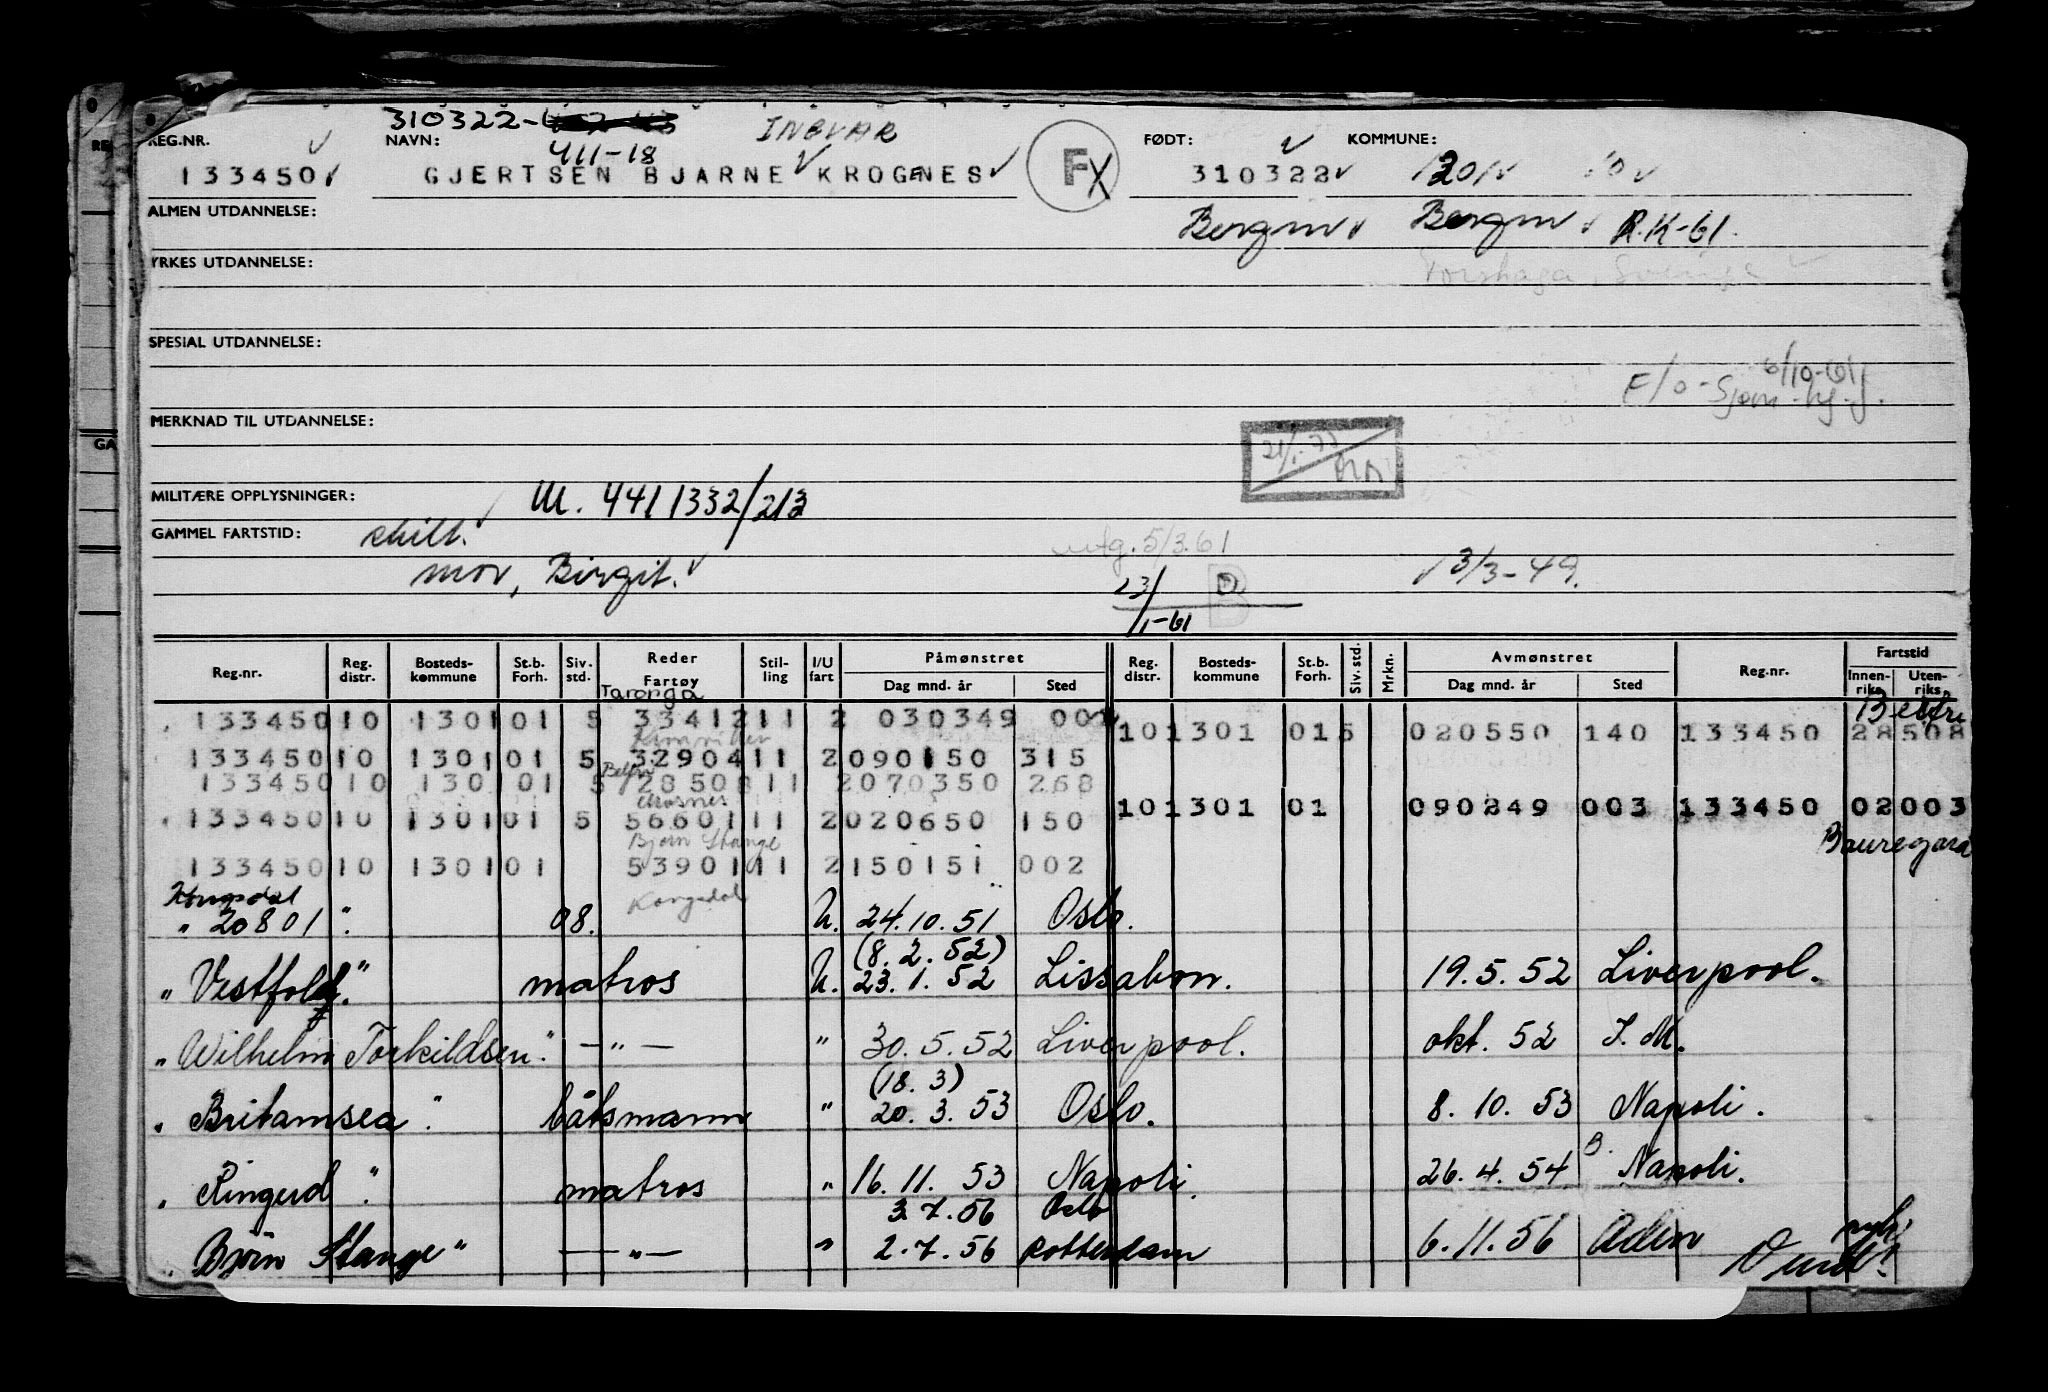 310322-
REG.NR. NAVN: INGVAR FØDT: KOMMUNE:
411-18
133450 GJERTSEN BJARNE KROGNES F 310322 1301
ALMEN UTDANNELSE: Bergen Bergen R.K-61.
YRKES UTDANNELSE: Forshaga, Sverige
SPESIAL UTDANNELSE:
6/10-61
F/o - Sjøm.
MERKNAD TIL UTDANNELSE:
MILITÆRE OPPLYSNINGER: M. 4411332/213
GAMMEL FARTSTID: skilt.
utg. 5/3.61
mor, Birgit. 3/3-49.
23/1-61
Reg.nr. Reg. distr. Bosteds- kommune St.b. Forh. Siv. std. Reder Fartøy Stil- ling I/U fart Påmønstret Dag mnd. år Sted Reg. distr. Bosteds- kommune St.b. Forh. Siv. std. Mrkn. Avmønstret Dag mnd. år Sted Reg.nr. Fartstid Innen- riks Uten- riks
Taronga Belfri
133450 10 1301 01 5 33412 11 2 030349 001 10 1301 01 5 020550 140 133450 28508
133450 10 1301 01 5 32904 11 2 090150 315
Belfri
133450 10 130 01 5 28508 11 2 070350 268
10 1301 01 090249 003 133450 02003
133450 10 1301 01 5 56601 11 2 020650 150
Bjørn Stange Bauregard
133450 10 1301 01 53901 11 2 150151 002
Kongsdal Kongsdal
" 20801 " 08. U. 24.10.51 Oslo.
(8.2.52)
" Vestfold " matros U. 23.1.52 Lissabon. 19.5.52 Liverpool.
" Wilhelm Torkildsen " — " — " 30.5.52 Liverpool. okt. 52 I.M.
(18.3)
" Britamsea " båtsmann " 20.3.53 Oslo. 8.10.53 Napoli.
" Ringerd " matros " 16.11.53 Napoli. 26.4.54 Napoli.
3.7.56 Oslo
" Bjørn Stange " — " — " 2.7.56 Rotterdam 6.11.56 Aden